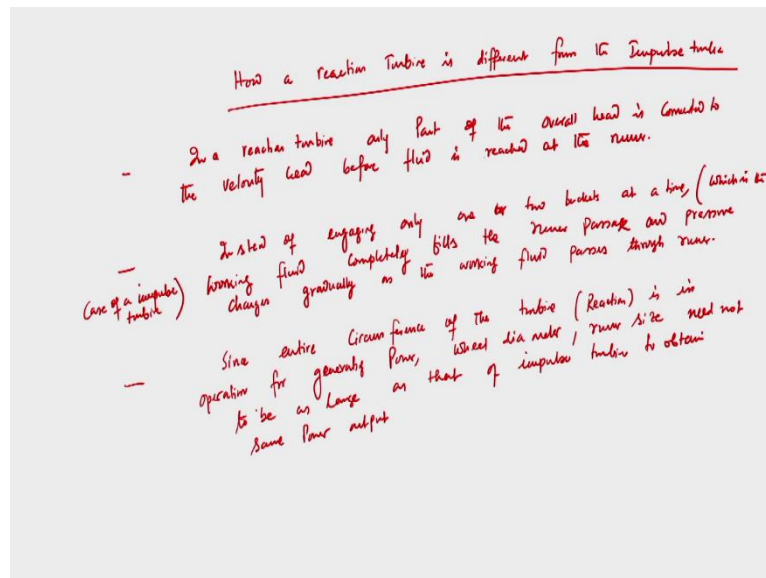 How a reaction Turbine is different from the Impulse turbine
- In a reaction turbine only Part of the overall head is converted to
the velocity head before fluid is reached at the runner.
- Instead of engaging only one or two buckets at a time, (which is the
case of a impulse turbine) working fluid completely fills the runner passage and pressure
changes gradually as the working fluid passes through runner.
- Since entire Circumference of the turbine (Reaction) is in
operation for generating Power, wheel diameter / runner size need not
to be as large as that of impulse turbine to obtain
same Power output